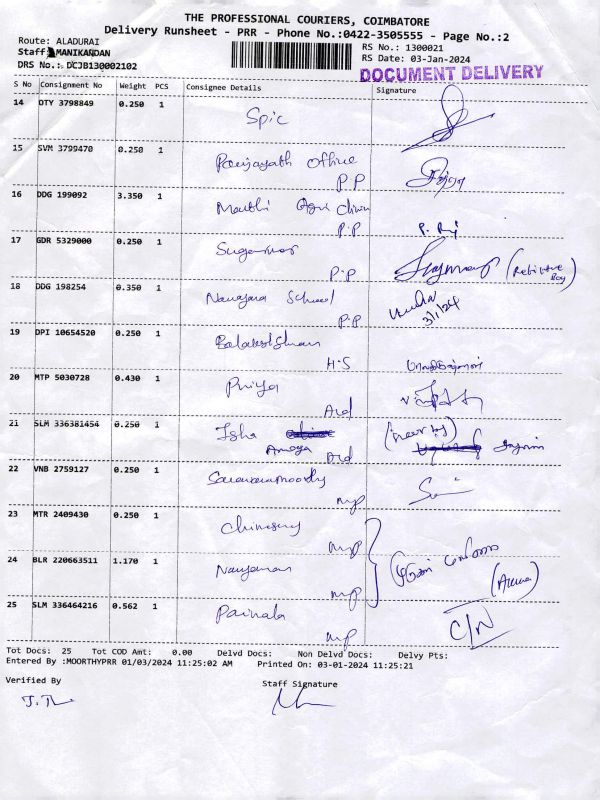 THE PROFESSIONAL COURIERS, COIMBATORE
Delivery Runsheet - PRR - Phone No.:0422-3505555 - Page No.:2
Route: ALADURAI RS No.: 1300021
Staff: MANIKANDAN RS Date: 03-Jan-2024
DRS No.: DCJB130002102 DOCUMENT DELIVERY
S No Consignment No Weight PCS Consignee Details Signature
14 DTY 3798849 0.250 1 Spic
15 SVM 3799470 0.250 1 Panjayath Office
P.P
16 DDG 199092 3.350 1 Maruthi Agri Clinic
P.P
17 GDR 5329000 0.250 1 Sugankumar
P.P
18 DDG 198254 0.350 1 School
P.P 3/1/24
19 DPI 10654520 0.250 1
H.S
20 MTP 5030728 0.430 1 Priya
21 SLM 336381454 0.250 1 Isha
22 VNB 2759127 0.250 1 Saravanamoorthy
mp
23 MTR 2409430 0.250 1
mp
24 BLR 220663511 1.170 1 Narayanan
mp
25 SLM 336464216 0.562 1 C/N
mp
Tot Docs: 25 Tot COD Amt: 0.00 Delvd Docs: Non Delvd Docs: Delvy Pts:
Entered By :MOORTHYPRR 01/03/2024 11:25:02 AM Printed On: 03-01-2024 11:25:21
Verified By Staff Signature